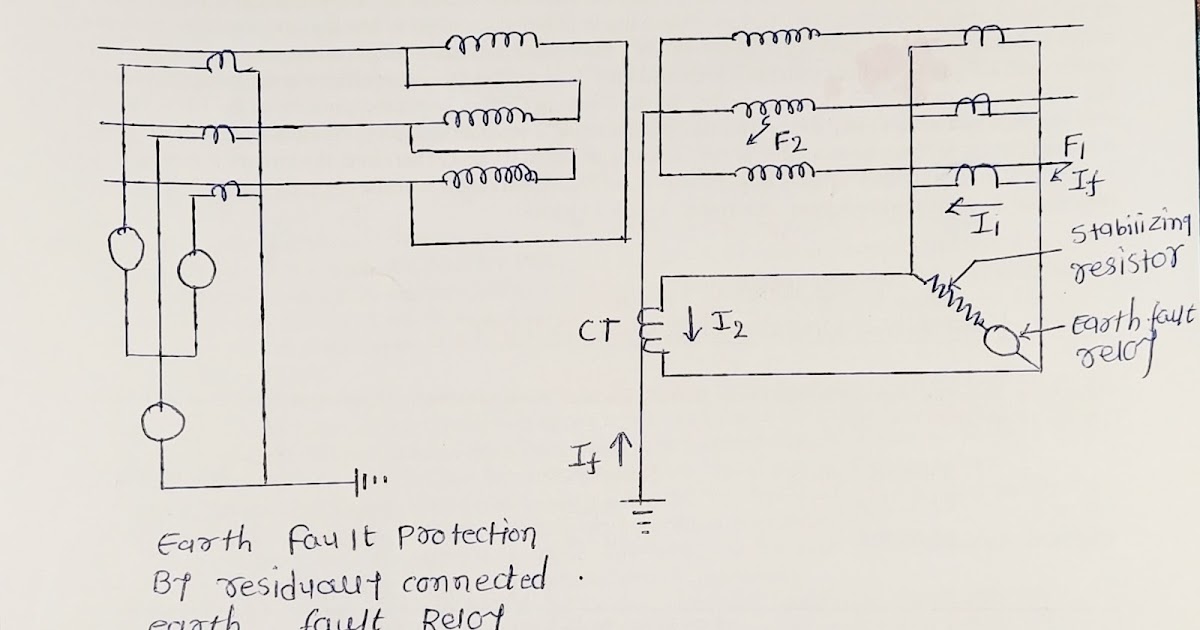 F2
F1
If
I1
Stabilizing
resistor
CT
I2
Earth fault
relay
If
Earth Fault Protection
By residually connected .
earth fault Relay